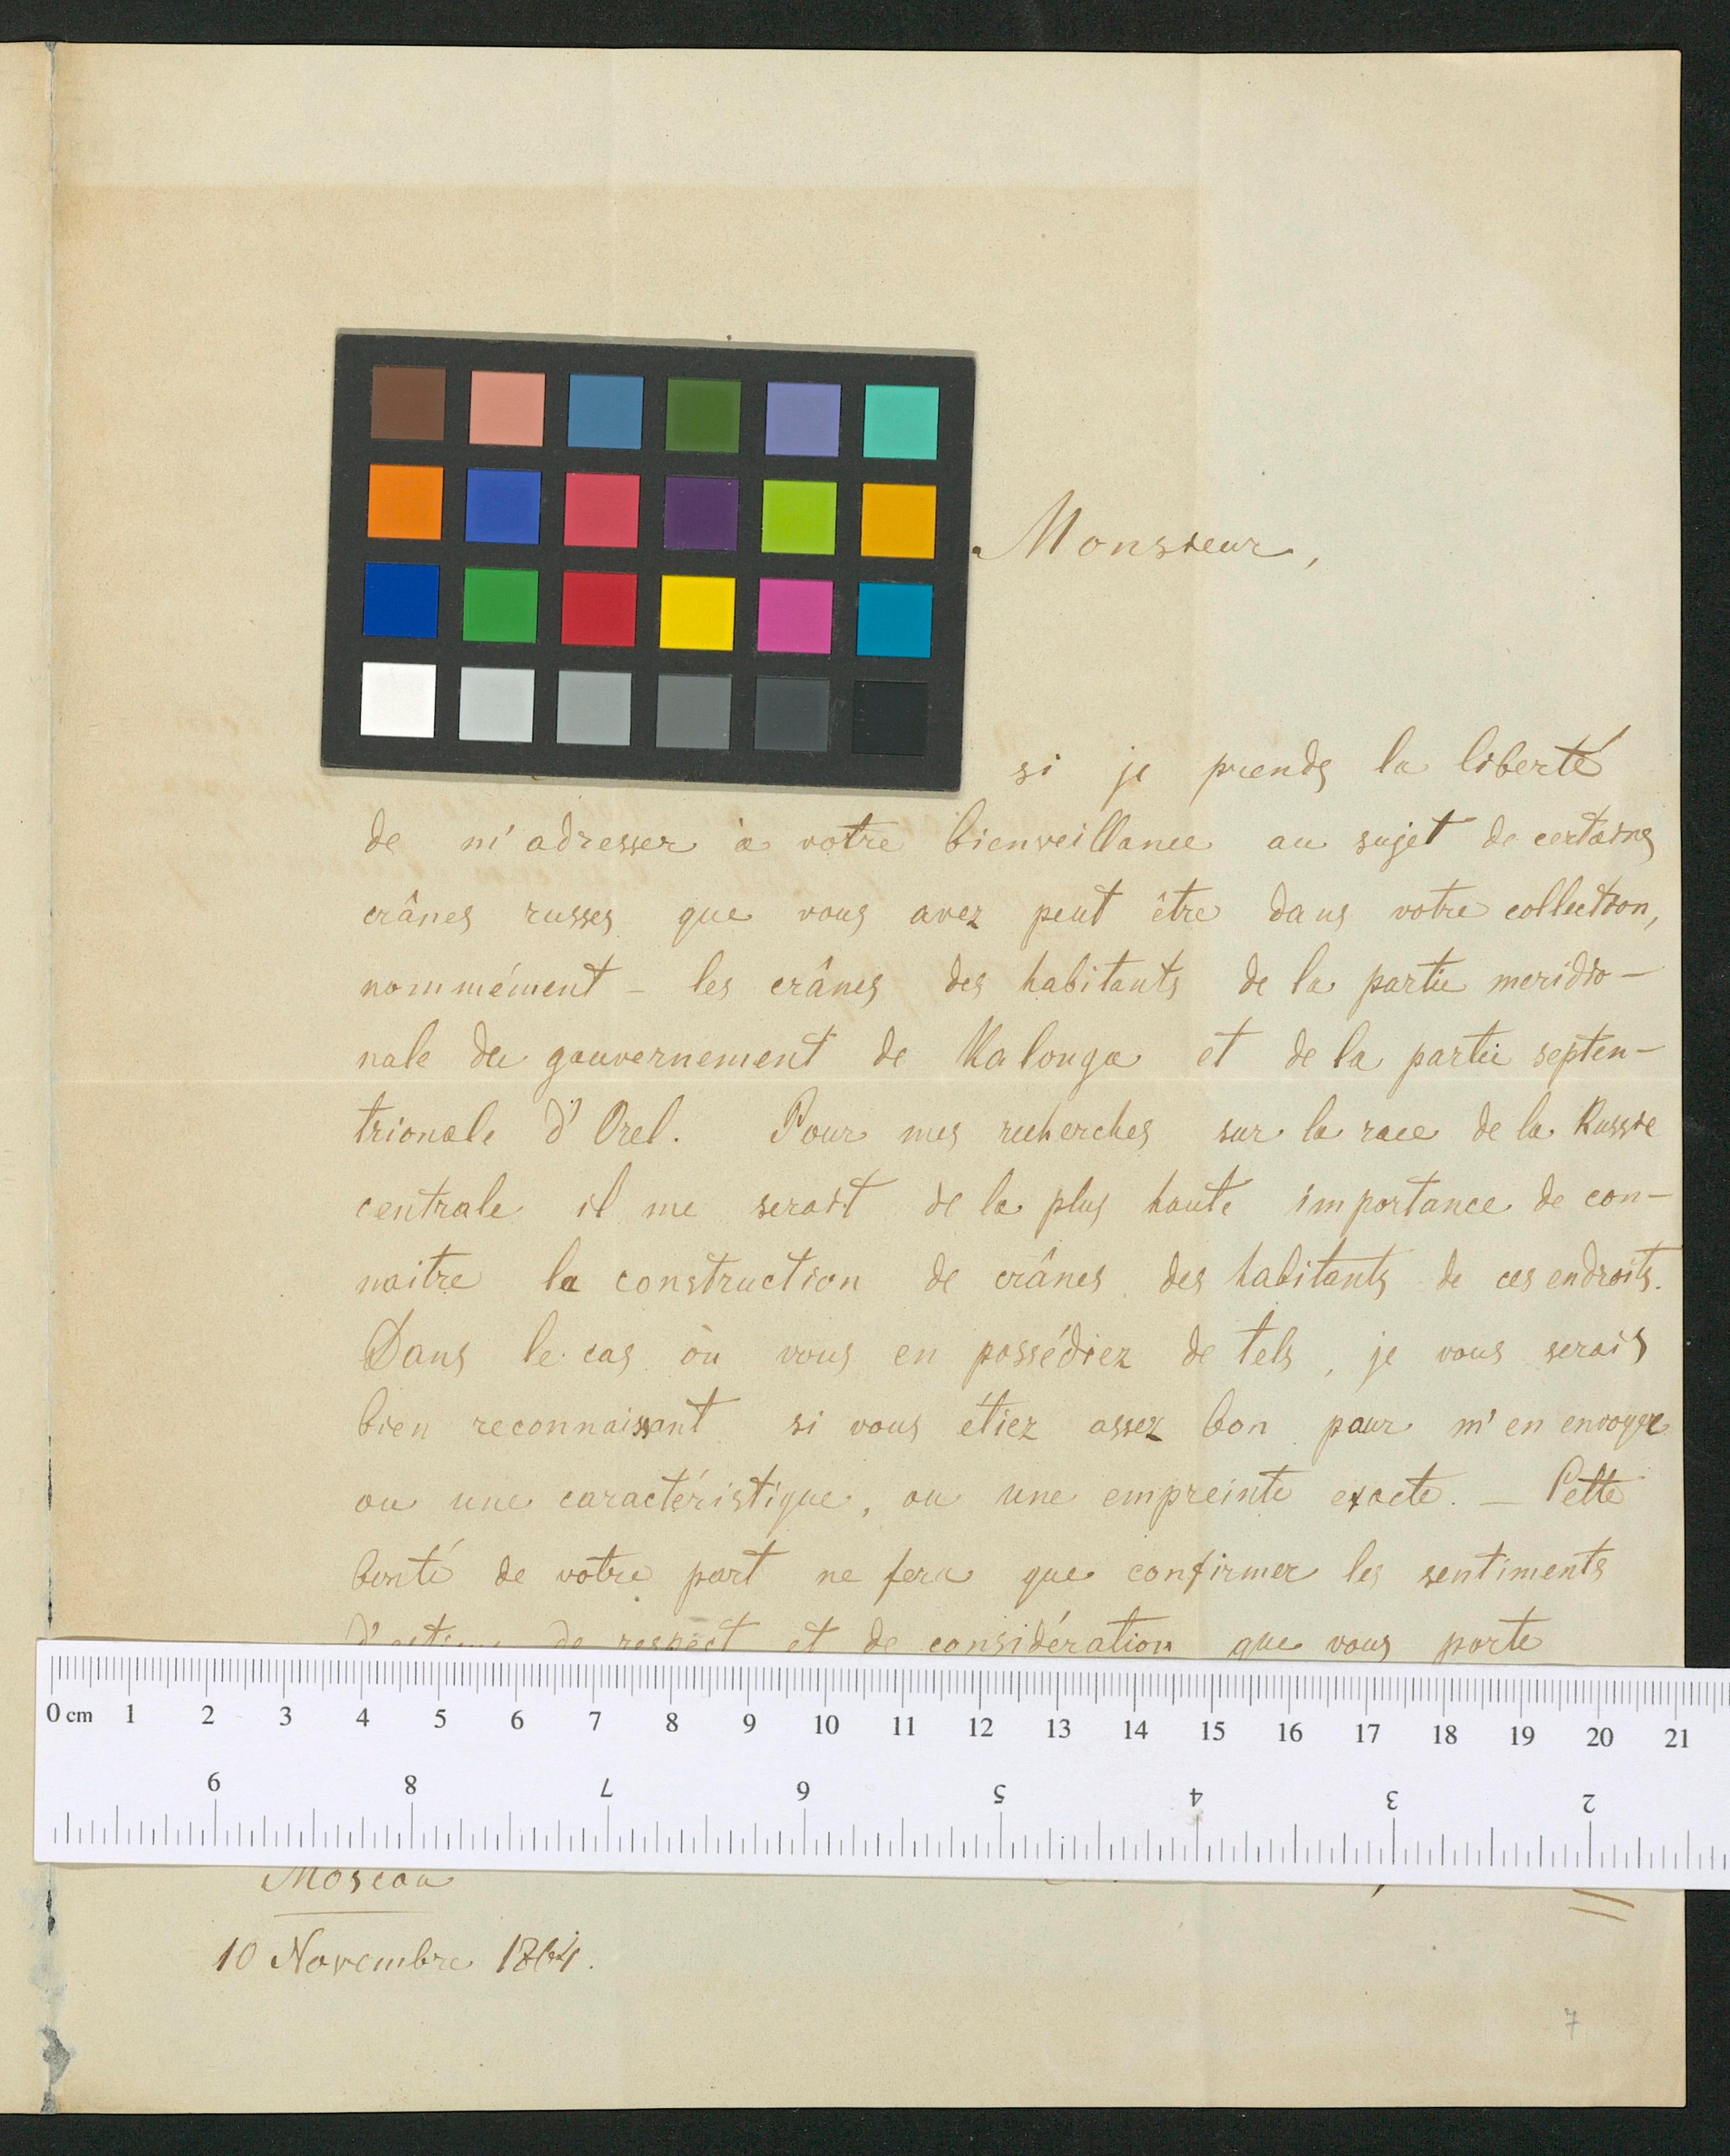 Monsieur,
si je prends la liberté
de m'adresser à votre bienveillance au sujet de certains
crânes russes que vous avez peut être dans votre collection,
nommément – les crânes des habitants de la partie meridio-
nale du gouvernement de Kalouga et de la partie septen-
trionale d'Orel. Pour mes recherches sur la race de la Russie
centrale il me serait de la plus haute importance de con-
naitre la construction de crânes des habitants de ces endroits.
Dans le cas où vous en possédiez de tels, je vous serais
bien reconnaissant si vous étiez assez bon pour m'en envoyer
ou une caractéristique, ou une empreinte exacte. — Cette
bonté de votre part ne fera que confirmer les sentiments
d'estime de respect et de considération que vous porte
0 cm 1 2 3 4 5 6 7 8 9 10 11 12 13 14 15 16 17 18 19 20 21
9 8 7 6 5 4 3 2
Moscou
10 Novembre 1864.
7